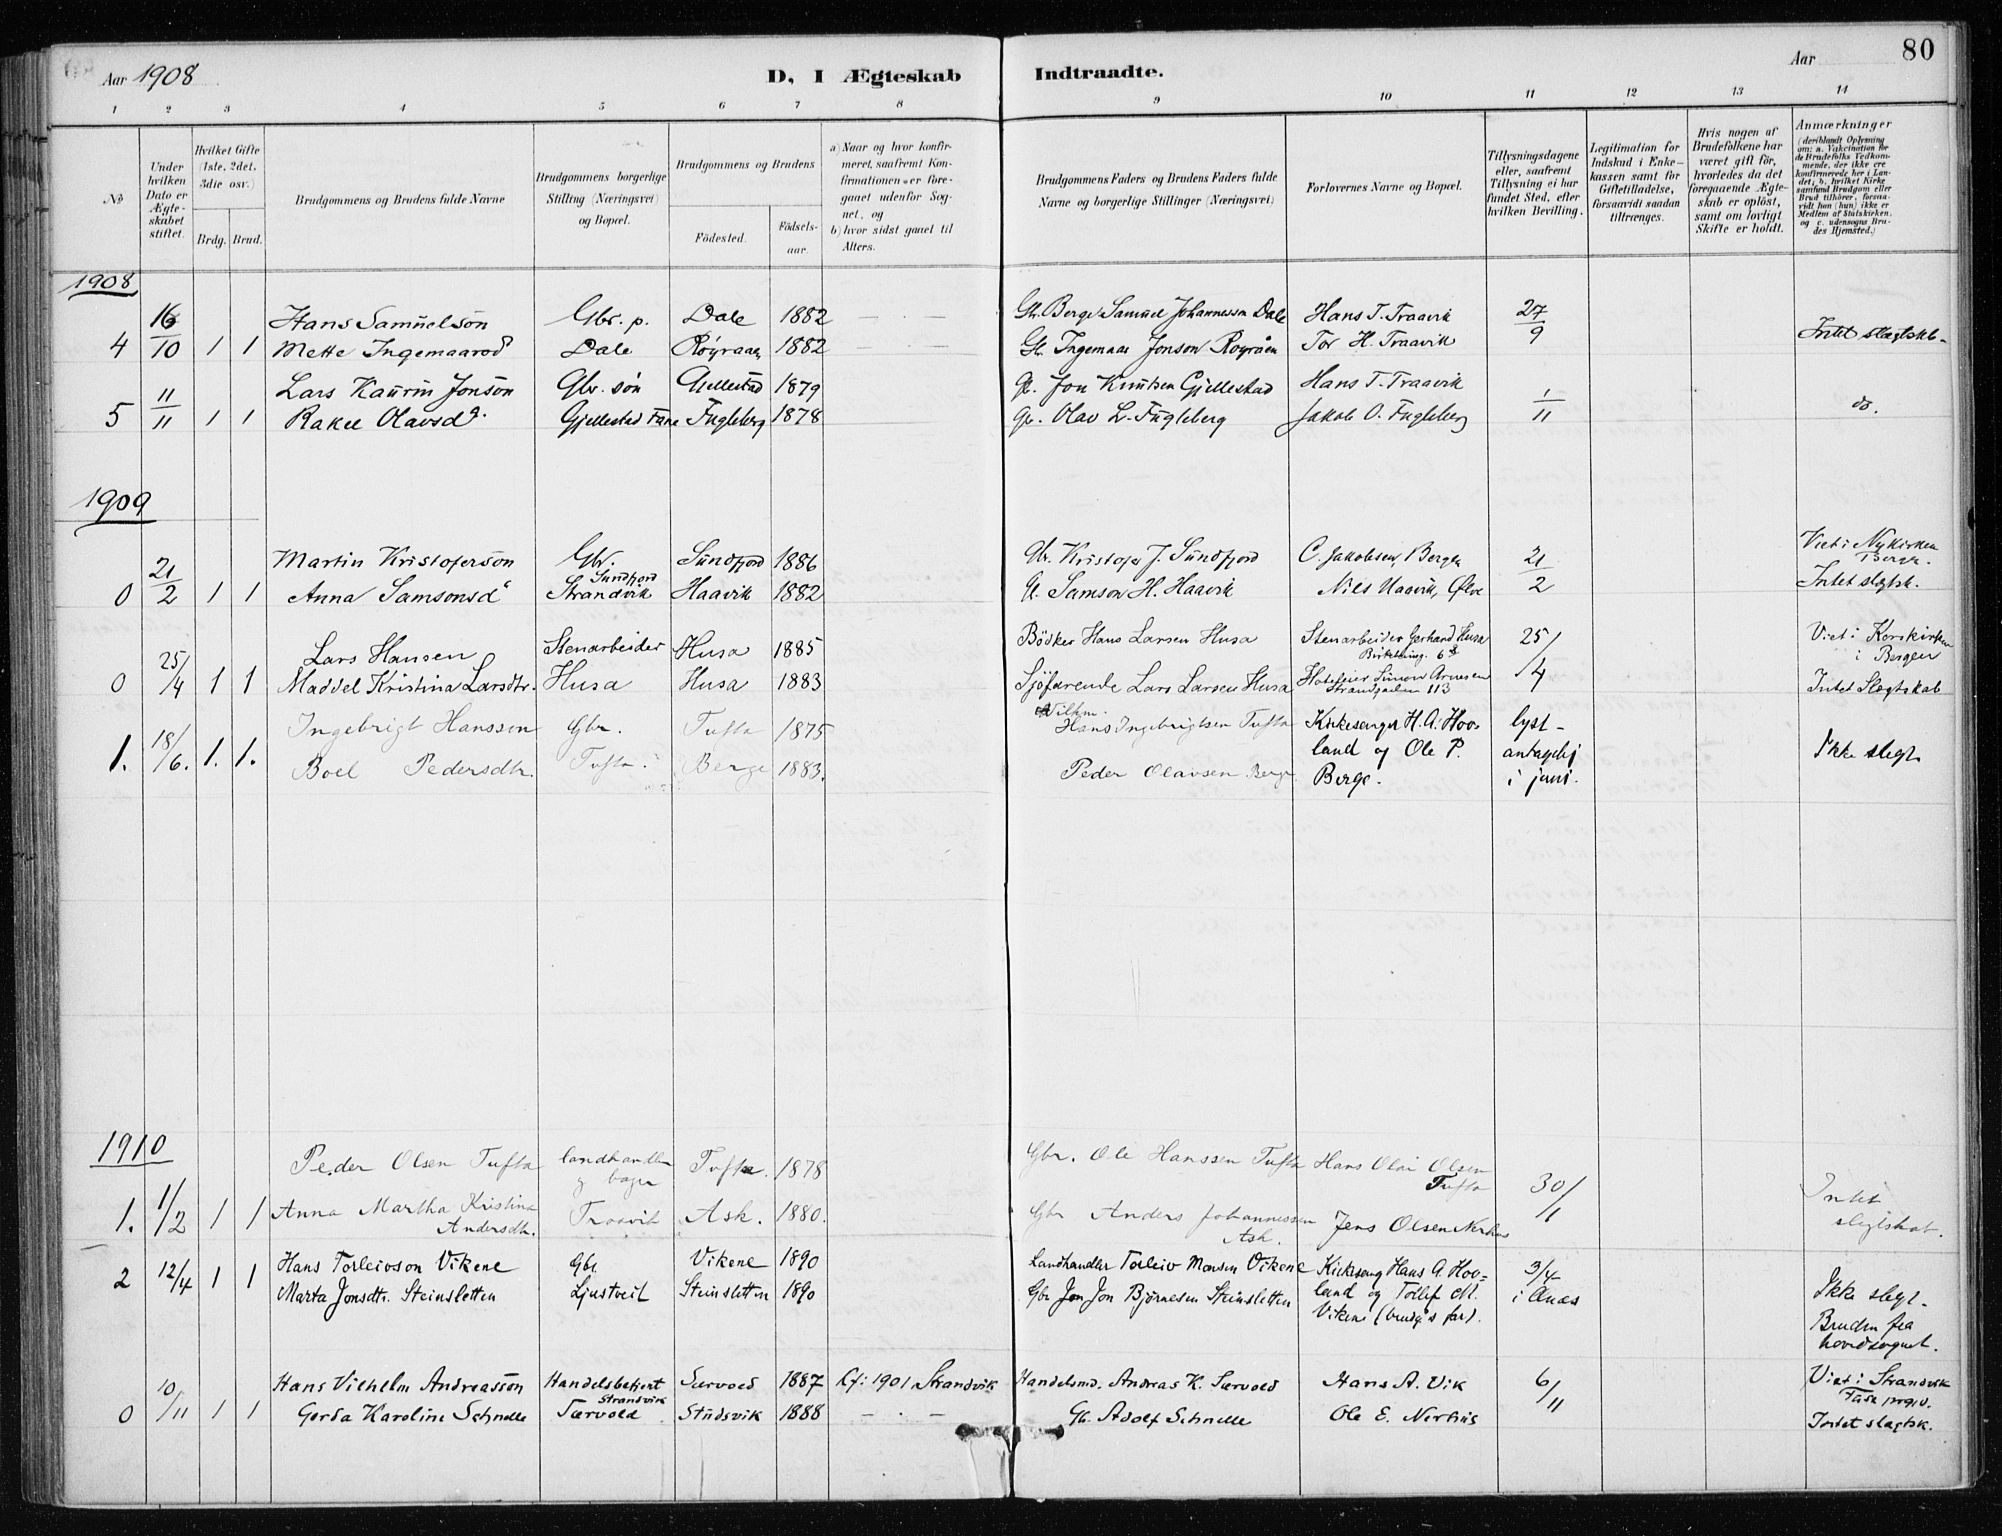 80
Aar 1908
D, I Ægteskab Indtraadte.
Aar
1 2 3 4 5 6 7 8 9 10 11 12 13 14
No
Under hvilken Dato er Ægteskabet stiftet.
Hvilket Gifte (1ste, 2det, 3die osv.)
Brdg. Brud.
Brudgommens og Brudens fulde Navne
Brudgommens borgerlige Stilling (Næringsvei) og Bopæl.
Brudgommens og Brudens
Födested. Födsels-aar.
a) Naar og hvor konfirmeret, saafremt Konfirmationen er foregaaet udenfor Sognet, og
b) hvor sidst gaaet til Alters.
Brudgommens Faders og Brudens Faders fulde Navne og borgerlige Stillinger (Næringsvei)
Forlovernes Navne og Bopæl.
Tillysningsdagene eller, saafremt Tillysning ei har fundet Sted, efter hvilken Bevilling.
Legitimation for Indskud i Enkekassen samt for Giftetilladelse, forsaavidt saadan tiltrænges.
Hvis nogen af Brudefolkene har været gift för, hvorledes da det foregaaende Ægteskab er oplöst, samt om lovligt Skifte er holdt.
Anmærkninger
(deriblandt Oplysning om: a. Vaccination for de Brudefolks Vedkommende, der ikke ere konfirmerede her i Landet; b. hvilket Kirkesamfund Brudgom eller Brud tilhörer, forsaavidt han (hun) ikke er Medlem af Statskirken, og c. udensogns Brudes Hjemsted.)
1908
16 Hans Samuelsön Gbr. p. Dale 1882 — — Berge Samuel Johannessen Dale Hans T. Traavik 27
4 10 1 1 Mette Ingemaarsd Dale Röyraaen 1882 — — Ingemaar Jonson Royråen Tor H. Traavik 9 Intet slægtsk.
11 Lars Kaurin Jonsön Gbr. sön Gjellestad 1879 Jon Knutsen Gjellestad Hans T. Traavik 1
5 11 1 1 Rakel Olavsd. Gjellestad Fane Fugleberg 1878 Olav L. Fugleberg Jakob O. Fugleberg 11 do.
1909
21 Martin Kristofersön Gbr. Sundfjord Sundfjord 1886 Gbr. Kristofer J. Sundfjord C. Jakobsen, Bergen 21 Viet i Nykirken Bergen.
0 2 1 1 Anna Samsonsd Strandvik Haavik 1882 G. Samson H. Haavik Nils Haavik, Ølve 2 Intet slegtsk.
Lars Hansen Stenarbeider Husa 1885 Bödker Hans Larsen Husa Stenarbeider Gerhard Husa 25/ Viet i Korskirken i Bergen
0 25/4 1 1 Maddel Kristina Larsdtr. Husa Husa 1883 Sjöfarende Lars Larsen Husa Simon Arnesen Strandgaden 113 4 Intet Slegtskab
Ingebrigt Hanssen Gbr. Tufta 1875 Hans Ingebrigtsen Tufta Kirkesanger H. A. Hov- lyst-
1. 18/6. 1. 1. Boel Pedersdtr. Tufta. Berge 1883. Peder Olavsen Berge land og Ole P. Berge. i juni. Ikke slegt
1910
Peder Olsen Tufta landhandler og bager Tufta. 1878 Gbr. Ole Hanssen Tufta Hans Olai Olsen Tufta 30/
1. 1/2 1 1 Anna Martha Kristina Andersdtr. Traavik Ask. 1880. Gbr Anders Johannessen Ask. Jens Olsen Nerhus 1 Intet slegtskab.
Hans Torleivson Vikene Gbr. Vikene 1890 Landhandler Torleiv Monsen Vikene Kirkesang Hans A. Hov= 3/4
2 12/4 1 1 Marta Jonsdtr. Steinsletten Ljustveit Steinsletten 1890 Gbr Jon Jon Björnesen Steinsletten land og Tollef M. Vikene (brudg's far). i Ænes Ikke slegt. Bruden fra hovedsognet.
10 Hans Vilhelm Andreassön Handelsbetjent Særvold 1887 Kf: 1901 Strandvik Handelsmd. Andreas K. Særvold Hans A. Vik 6 Viet i Strandvik Fusa prgjd.
0 11 1 1 Gerda Karoline Schnelle Strandvik Særvold Studsvik 1888 — — Gb. Adolf Schnelle Ole E. Nerhus 11 Intet slegtsk.